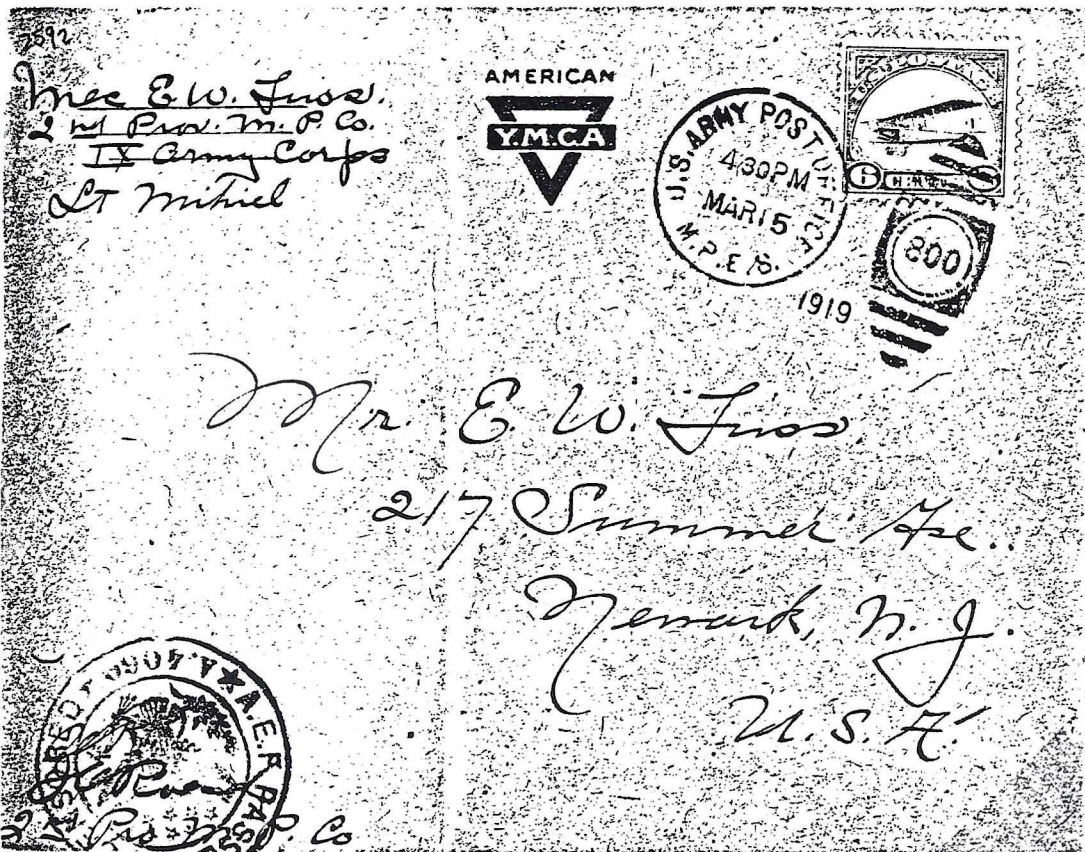 7592
E. W. Fuss.
2nd Prov. M. P. Co.
IX Army Corps
St Mihiel
AMERICAN
Y.M.C.A
U.S. ARMY POST OFFICE
4 30 PM
MAR 15
M.P.E.S.
1919
6
800
Mr. E. W. Fuss
217 Summer Ave.
Newark, N. J.
U. S. A.
A.E.F. PASSED AS CENSORED
Co